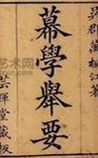 吳郡萬楓江著
幕學舉要
芸暉堂藏板